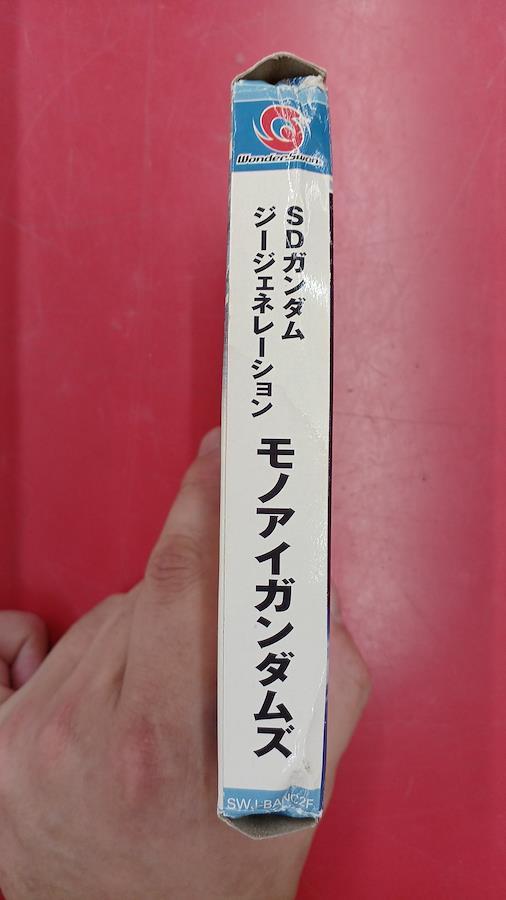 WonderSwan
SDガンダム
ジージェネレーション
モノアイガンダムズ
SWJ-BANC2F